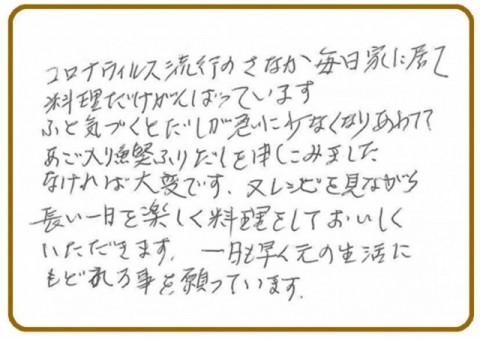 コロナウィルス流行のさなか毎日家に居て
料理だけがんばっています
ふと気づくとだしが急に少なくなりあわてて
あご入り鰹ふりだしを申しこみました
なければ大変です、又レシピを見ながら
長い一日を楽しく料理をしておいしく
いただきます。一日も早く元の生活に
もどれる事を願っています。